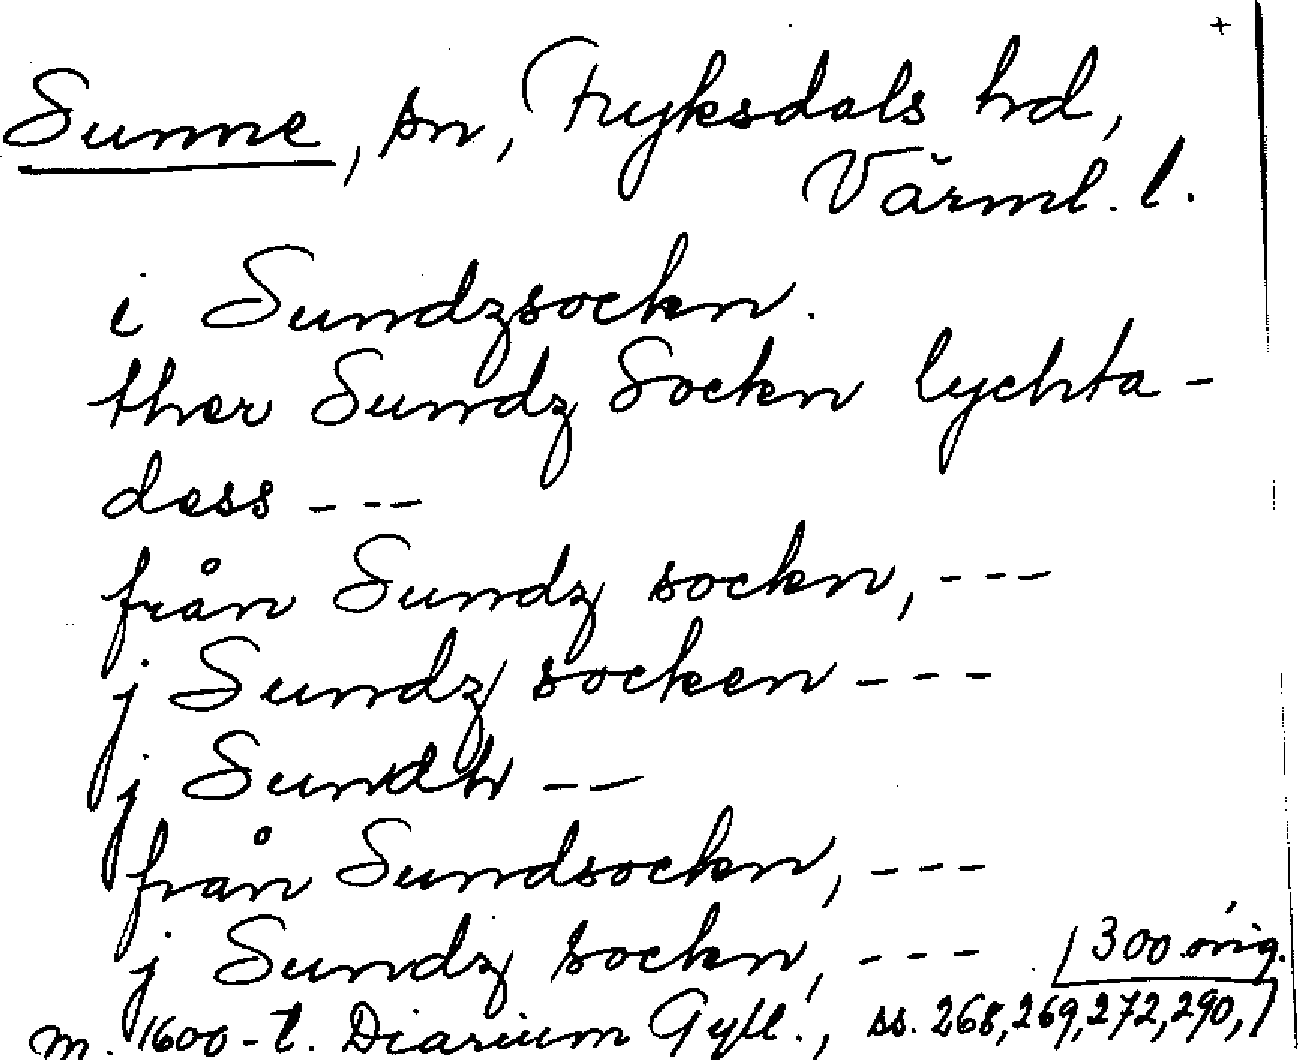 +
Sunne, sn, Fryksdals hd,
Värml. l.
i Sundzsockn.
ther Sundz Sockn lychta-
dess ---
från Sundz sockn, ---
j Sundz socken ---
j Sundh --
från Sundsockn, ---
j Sundz sockn, ---
300 öring.
m. 1600-t. Diarium Gyll., ss. 268, 269, 272, 290,